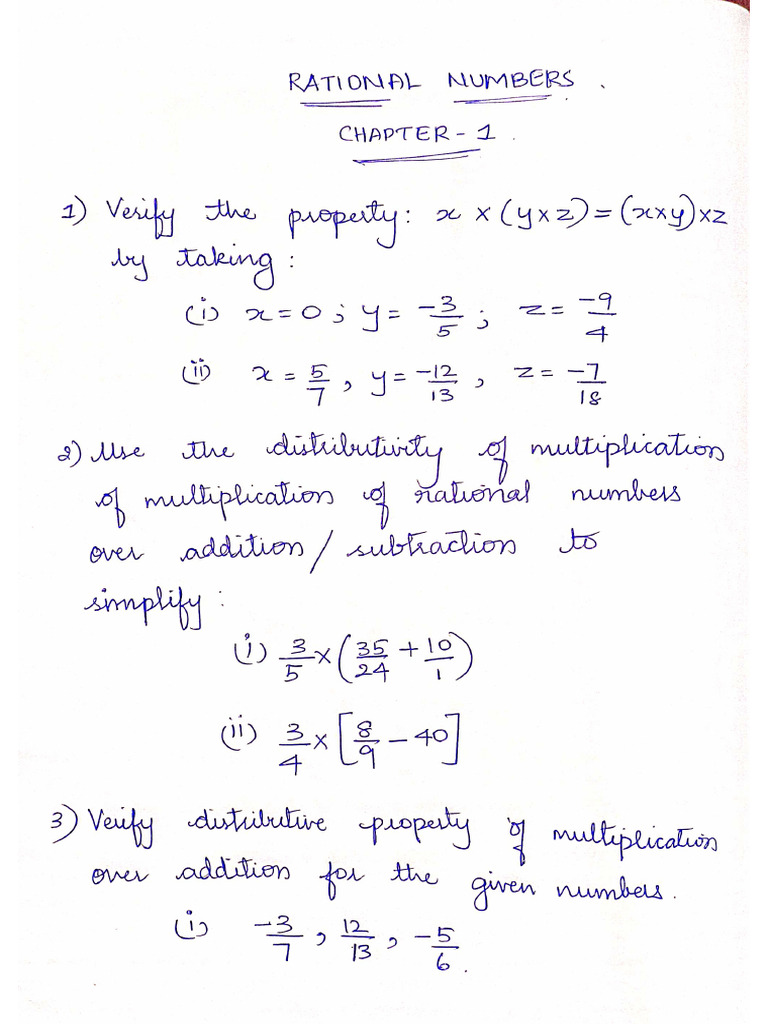 RATIONAL NUMBERS .
CHAPTER - 1 .
1) Verify the property: x × (y×z) = (x×y)×z
by taking :
(i) x = 0 ; y = -3/5 ; z = -9/4
(ii) x = 5/7 , y = -12/13 , z = -7/18
2) Use the distributivity of multiplication
of multiplication of rational numbers
over addition / subtraction to
simplify :
(i) 3/5 × (35/24 + 10/1)
(ii) 3/4 × [8/9 - 40]
3) Verify distributive property of multiplication
over addition for the given numbers.
(i) -3/7 , 12/13 , -5/6 .